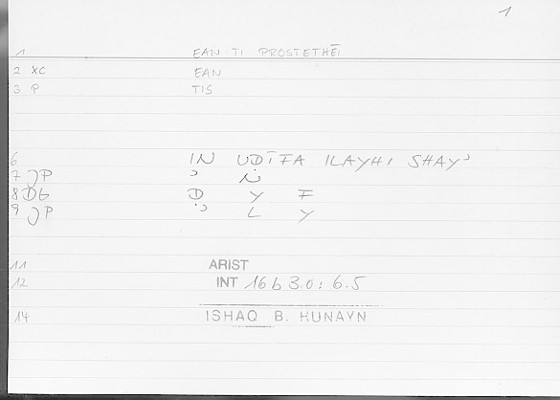 1
1 EAN TI PROSTETHĒI
2 XC EAN
3 P TIS
6 IN UḌĪFA ILAYHI SHAYʾ
7 JP ʾ N
8 DG Ḍ Y F
9 JP ʾ L Y
11 ARIST
12 INT 16b 30: 6.5
14 ISHAQ B. HUNAYN